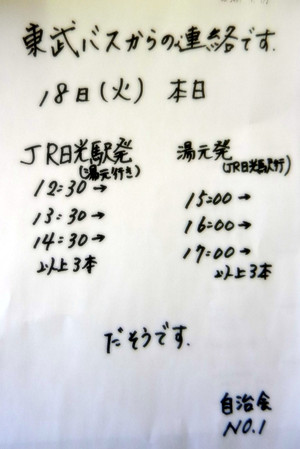 東武バスからの連絡です.
18日(火) 本日
JR日光駅発
(湯元行き)
12:30→
13:30→
14:30→
以上3本
湯元発
(JR日光駅行)
15:00→
16:00→
17:00→
以上3本
だそうです.
自治会
NO.1